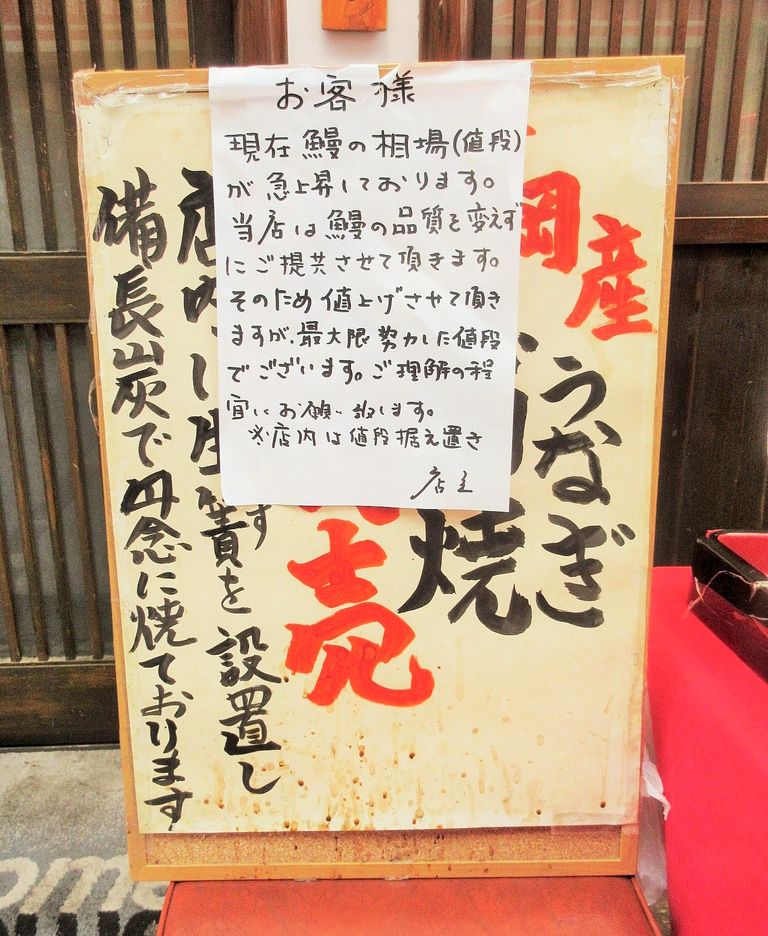 お客様
現在鰻の相場(値段)
が急上昇しております。
当店は鰻の品質を変えず
にご提供させて頂きます。
そのため値上げさせて頂き
ますが、最大限努力した値段
でございます。ご理解の程
宜しくお願い致します。
※店内は値段据え置き
店主
岡産
うなぎ
焼
売
す
店内に生簀を設置し
備長炭で丹念に焼ております